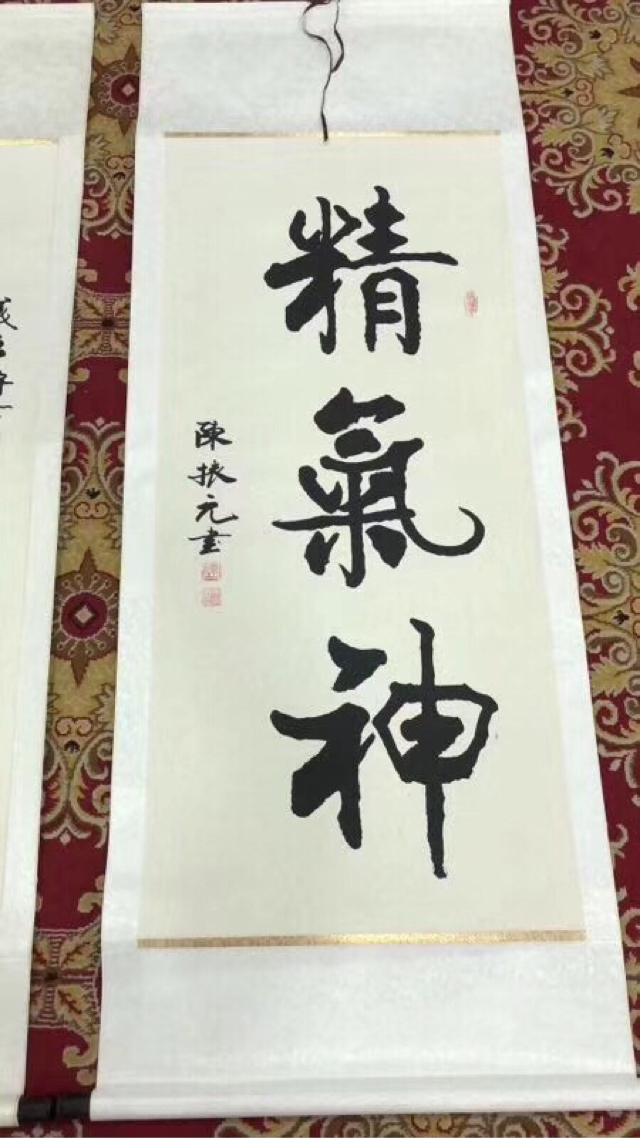 精氣神
陳振元書